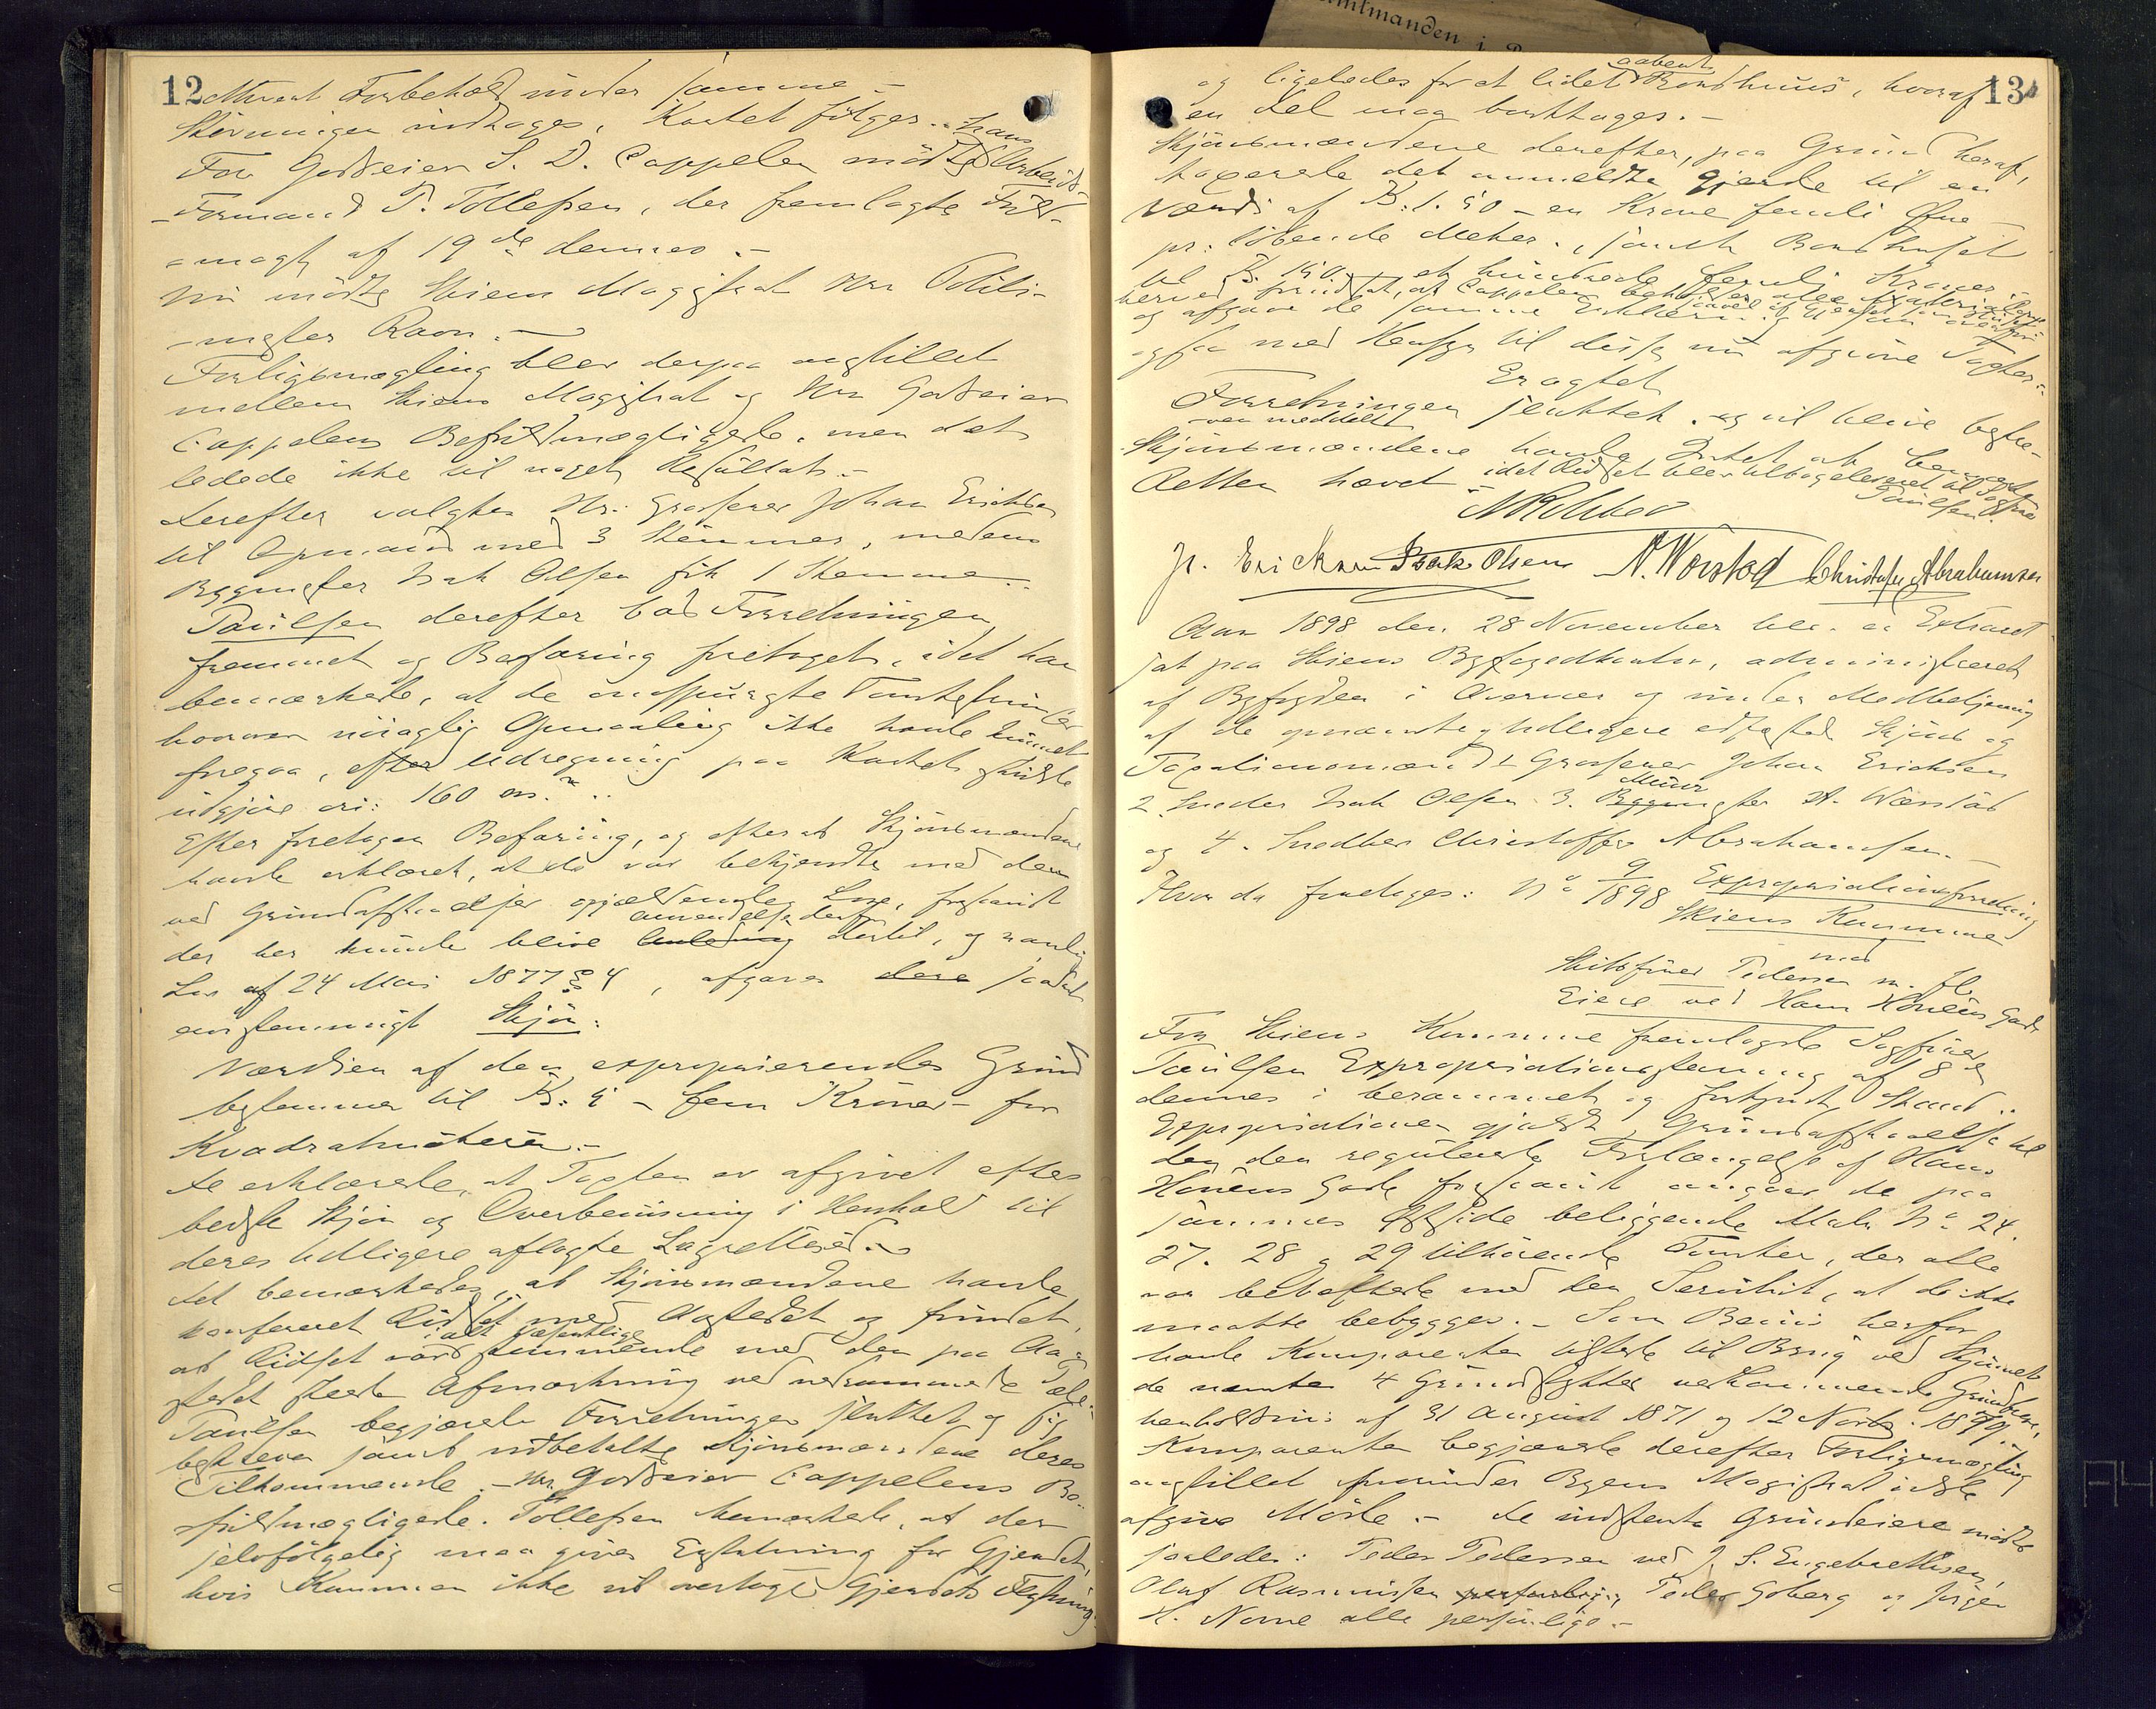 12
Forbehold under samme.-
Skrivningen indtages, Kartet følges.
For Godseier S. D. Cappelen mødte hans Arbeids-
-Formand P. Tollefsen, der fremlagte Fuld-
-magt af 19de dennes.-
Nu mødte Skiens Magistrat ved Politi-
-mester Ravn.-
Forligsmægling blev derpaa anstillet
mellem Skiens Magistrat og Hr. Godseier
Cappelens Befuldmægtigede, men det
ledede ikke til noget Resultat.-
Derefter valgtes Hr. Grosserer Johan Erichsen
til Opmand med 3 Stemmer, medens
Bygmester Isak Olsen fik 1 Stemme.-
Paulsen derefter bad Forretningen
fremmet og Befaring foretaget, idet han
bemærkede, at de omspurgte Tomtegrunde
hvorover nøiagtig Opmaaling ikke havde kunnet
foregaa, efter Udregning paa Kartet skulde
udgjøre cri: 160 m.²
Efter foretagen Befaring, og efterat Skjønsmændene
havde erklæret, at de var bekjendte med den
ved Grundafstaaelser gjældende Lov, forsaavidt
der her kunde blive Anledning anvendelse derfor dertil, og navnlig
Lov af 24 Mai 1877 § 4, afgaves dere saadant
enstemmigt Skjøn:
Værdien af den exproprierendes Grund
bestemmes til K: 5 - fem Kroner - for
Kvadratmeteren.-
De erklærede, at Taxten er afgivet efter
bedste Skjøn og Overbevisning i Henhold til
deres tidligere aflagte Lagrettesed.-
Det bemærkedes, at Skjønsmændene havde
konfereret Ridset med Aastedet og fundet,
at Ridset var i alt væsentlige stemmende med den paa Aa-
stedet skeede Afmærkning ved nedrammede Pæle.
Paulsen begjærede Forretningen sluttet og sig
beskreven samt udbetalte Skjønsmændene deres
Tilkommende.- Hr. Godseier Cappelens Be-
fuldmægtigede Tollefsen bemærkede, at der
selvfølgelig maa gives Erstatning for Gjerdet,
hvis Kommunen ikke vil overtage Gjerdets Flytning,
13
og ligeledes for et lidet aabent Brandhuus, hvoraf
en del maa borttages.-
Skjønsmændene derefter, paa Grund heraf,
taxerede det anmeldte Gjerde til en
Værdi af K. 1.50 - en Krone femti Øre -
pr: løbende Meter, samt Brandhuset
til K. 150 - et hundrede femti Kroner
herved forudsat, at Cappelen beholder alle Materialer
og afgave de samme Erklæring som ovenfor
ogsaa med Hensyn til disse nu afgivne Taxter.-
Eragtet
Forretningen sluttet, og vil blive beskre-
-ven meddelt
Skjønsmændene havde Intet at bemærke
Retten hævet idet Ridset blev tilbageleveret til Sagfører
Paulsen.
J. Erichsen Isak Olsen N. Wørstad Christoffer Abrahamsen
Aar 1898 den 28 November blev en Extraret
sat paa Skiens Byfogedkontor, administreret
af Byfogden i Overvær og under Medbetjening
af de opnævnte tidligere edfæstede Skjøns og
Taxationsmænd 1 Grosserer Johan Erichsen
2. Snedker Isak Olsen 3. Muur Bygmester N. Wørstad
og 4. Snedker Christoffer Abrahamsen.-
Hvor da foretoges: No 9/1898 Expropriationsforretning
Skiens Kommune
mod
Skibsfører Pedersen m. fl.
Eiere ved Hans Houens Gade
For Skiens Kommune fremlagde Sagfører
Paulsen Expropriationsstevning af 18de
dennes i berammet og forkyndt Stand.
Expropriationen gjaldt Grundafstaaelse til
den den regulerede Forlængelse af Hans
Houens Gade forsaavidt angaar de paa
sammes Østside beliggende Matr No 24.
27. 28 og 29 tilhørende Tomter, der alle
var beheftede med den Servitut, at de ikke
maatte bebygges.- Som Beviis herfor
havde Komparenten tilstede til Brug ved Skjønnet
de nævnte 4 Grundstykker vedkommende Grundbreve,
henholdsvis af 31 August 1871 og 12 Novbr. 1890.
Komparenten begjærede derefter Forligsmægling
anstillet forinden Byens Magistrat idet
afgive Møde.- De indstevnte Grundeiere mødte
saaledes: Peder Pedersen ved J. S. Engebrethsen,
Oluf Rasmussen personlig, Peder Goberg og Jørgen
H. Norne alle personlige.-